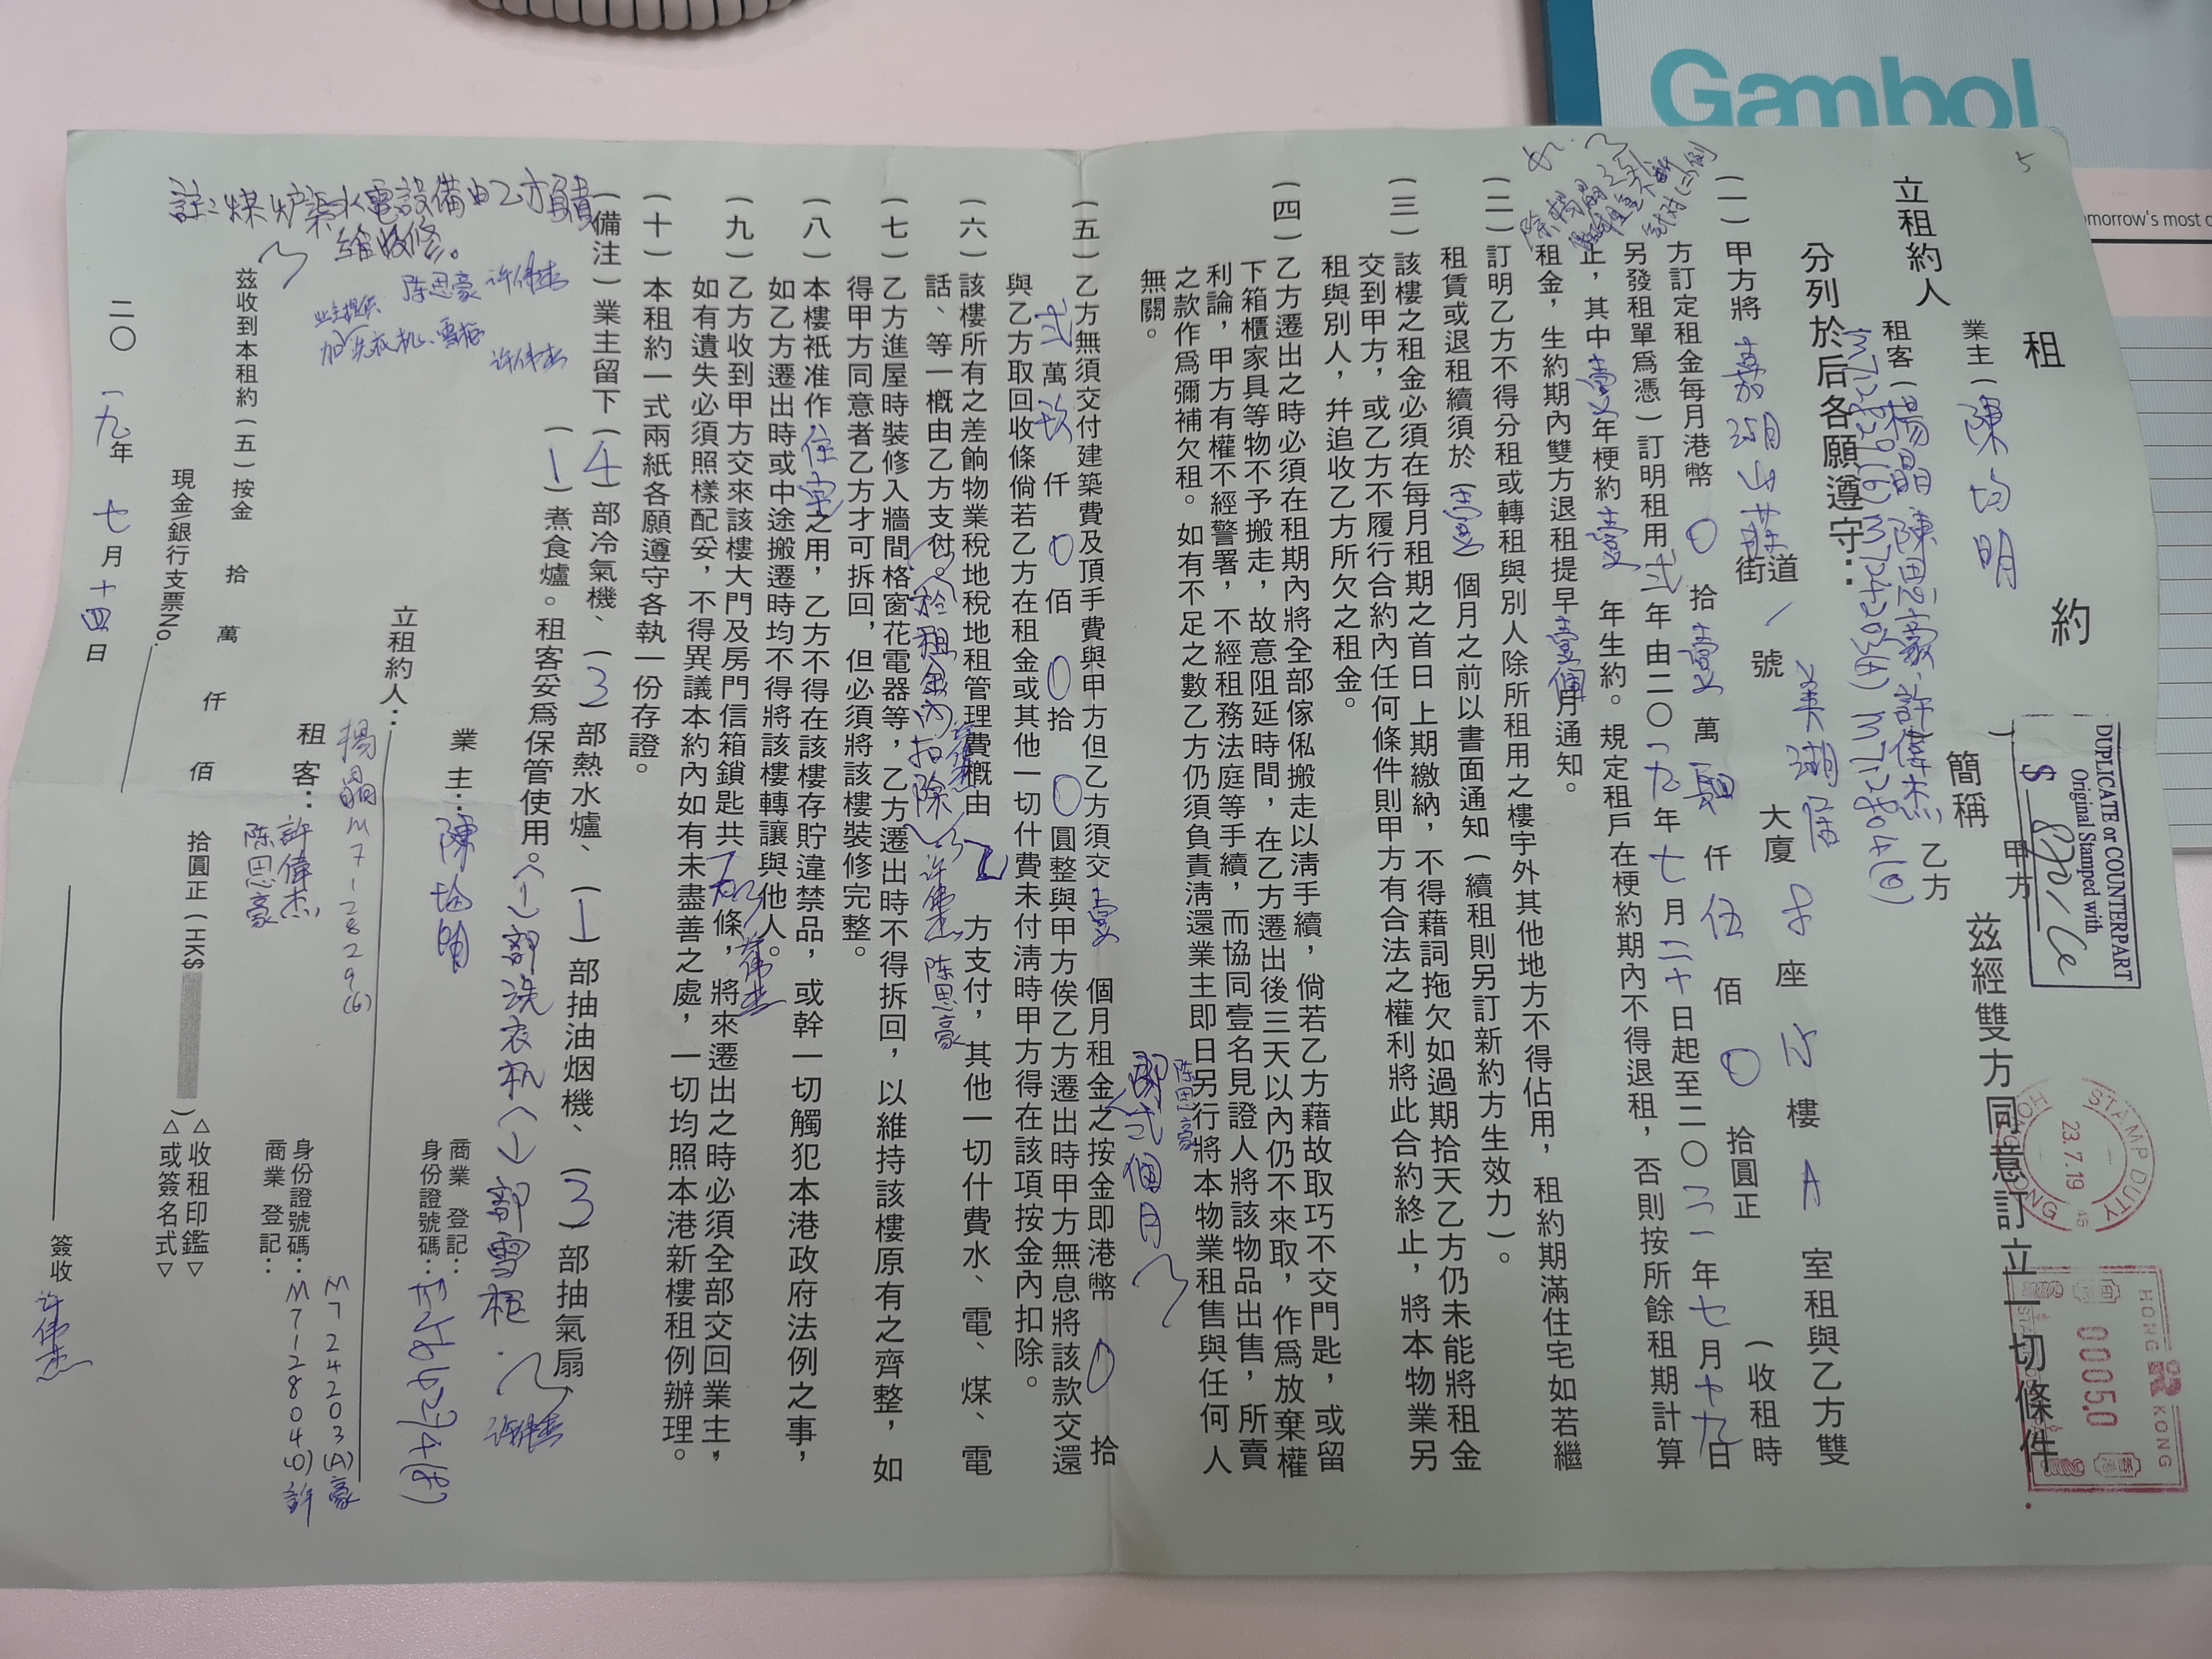 Gambol
omorrow's most c
5
租約
立租約人
業主（陳均明
租客（楊晶 陳思豪 許偉杰
）
簡稱
甲方
乙方
茲經雙方同意訂立一切條件
分列於后各願遵守：
DUPLICATE or COUNTERPART
Original Stamped with
$
STAMP DUTY
HONG KONG
23.7.19
HONG KONG
00050
（一）甲方將 嘉湖山莊 街道 / 號 美湖居 大廈 座 樓 A 室租與乙方雙
方訂定租金每月港幣 0 拾 壹 萬 仟 伍 佰 0 拾圓正（收租時
另發租單為憑）訂明租用 弍 年由二〇一九年七月二十日起至二〇二一年七月十九日
止，其中 壹 年梗約 壹 年生約。規定租戶在梗約期內不得退租，否則按所餘租期計算
租金，生約期內雙方退租提早壹個月通知。
（二）訂明乙方不得分租或轉租與別人除所租用之樓宇外其他地方不得佔用，租約期滿住宅如若繼
租賃或退租續須於（壹）個月之前以書面通知（續租則另訂新約方生效力）。
（三）該樓之租金必須在每月租期之首日上期繳納，不得藉詞拖欠如過期拾天乙方仍未能將租金
交到甲方，或乙方不履行合約內任何條件則甲方有合法之權利將此合約終止，將本物業另
租與別人，幷追收乙方所欠之租金。
（四）乙方遷出之時必須在租期內將全部傢俬搬走以淸手續，倘若乙方藉故取巧不交門匙，或留
下箱櫃家具等物不予搬走，故意阻延時間，在乙方遷出後三天以內仍不來取，作爲放棄權
利論，甲方有權不經警署，不經租務法庭等手續，而協同壹名見證人將該物品出售，所賣
之款作爲彌補欠租。如有不足之數乙方仍須負責淸還業主即日另行將本物業租售與任何人
無關。
陈思豪
即弍個月
（五）乙方無須交付建築費及頂手費與甲方但乙方須交 壹 個月租金之按金即港幣 0 拾
弍 萬 玖 仟 0 佰 0 拾 0 圓整與甲方俟乙方遷出時甲方無息將該款交還
與乙方取回收條倘若乙方在租金或其他一切什費未付淸時甲方得在該項按金內扣除。
（六）該樓所有之差餉物業稅地稅地租管理費概由 乙 方支付，其他一切什費水、電、煤、電
話、等一概由乙方支付。（於租金內扣除） 许偉杰 陈思豪
（七）乙方進屋時裝修入牆間格窗花電器等，乙方遷出時不得拆回，以維持該樓原有之齊整，如
得甲方同意者乙方才可拆回，但必須將該樓裝修完整。
（八）本樓衹准作住宅之用，乙方不得在該樓存貯違禁品，或幹一切觸犯本港政府法例之事，
如乙方遷出時或中途搬遷時均不得將該樓轉讓與他人。
（九）乙方收到甲方交來該樓大門及房門信箱鎖匙共 條，將來遷出之時必須全部交回業主，
如有遺失必須照樣配妥，不得異議本約內如有未盡善之處，一切均照本港新樓租例辦理。
（十）本租約一式兩紙各願遵守各執一份存證。
（備注）業主留下（4）部冷氣機、（3）部熱水爐、（1）部抽油烟機、（3）部抽氣扇
（1）煮食爐。租客妥爲保管使用。（1）部洗衣机（1）部雪柜.
註：煤炉渠水電設備由乙方負責
維修。
陈思豪 许偉杰
业主提供
加洗衣机、雪柜
许偉杰
立租約人：
業主：陳均明
商業登記：
身份證號碼：
租客：
楊晶 M712829(6)
許偉杰
陈思豪
身份證號碼：M7128040) 許
M724203(A)豪
商業登記：
茲收到本租約（五）按金 拾 萬 仟 佰 拾圓正（HK$ ）
現金\銀行支票No.
△收租印鑑▽
△或簽名式▽
二〇一九年七月十四日
簽收 许偉杰